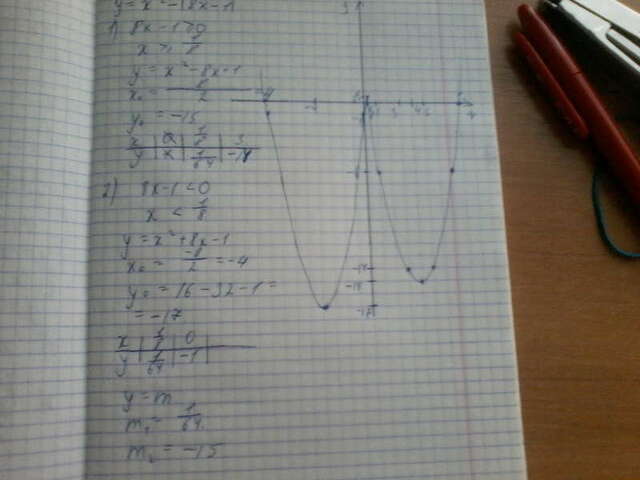 1) 8x - 1 ≥ 0
x ≥ 1/8
y = x² - 8x + 1
x₀ = 8/2
y₀ = -15
x | 0 | 1/8 | 3
y | x | 1/64 | -14
2) 8x - 1 < 0
x < 1/8
y = x² + 8x - 1
x₀ = -8/2 = -4
y₀ = 16 - 32 - 1 =
= -17
x | 1/8 | 0
y | 1/64 | -1
y = m
m₁ = 1/64
m₂ = -15
-14
-15
-17